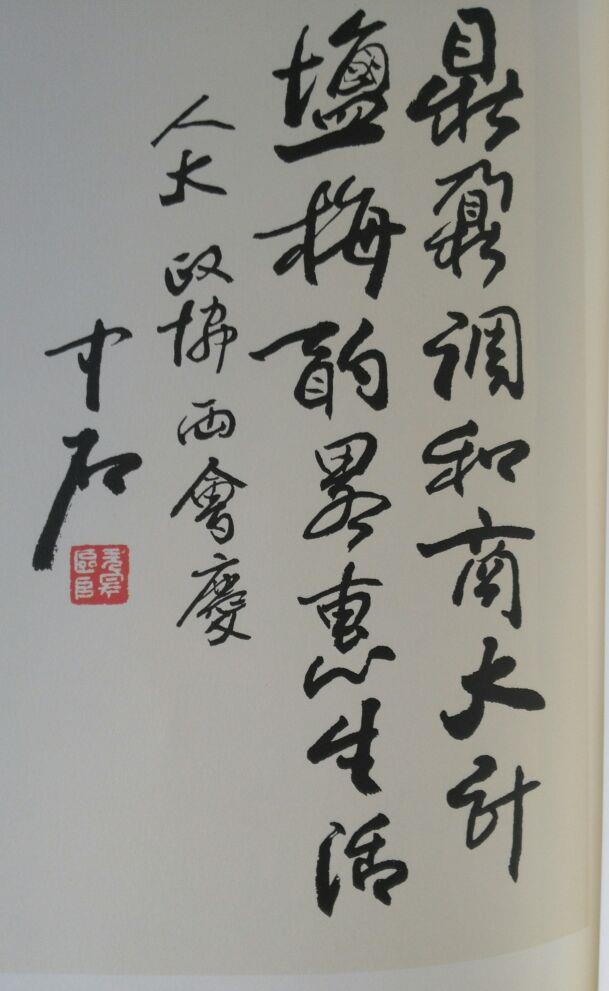 鼎鼐调和商大计
塩梅酌畧惠生活
人大 政協 两會慶
中石